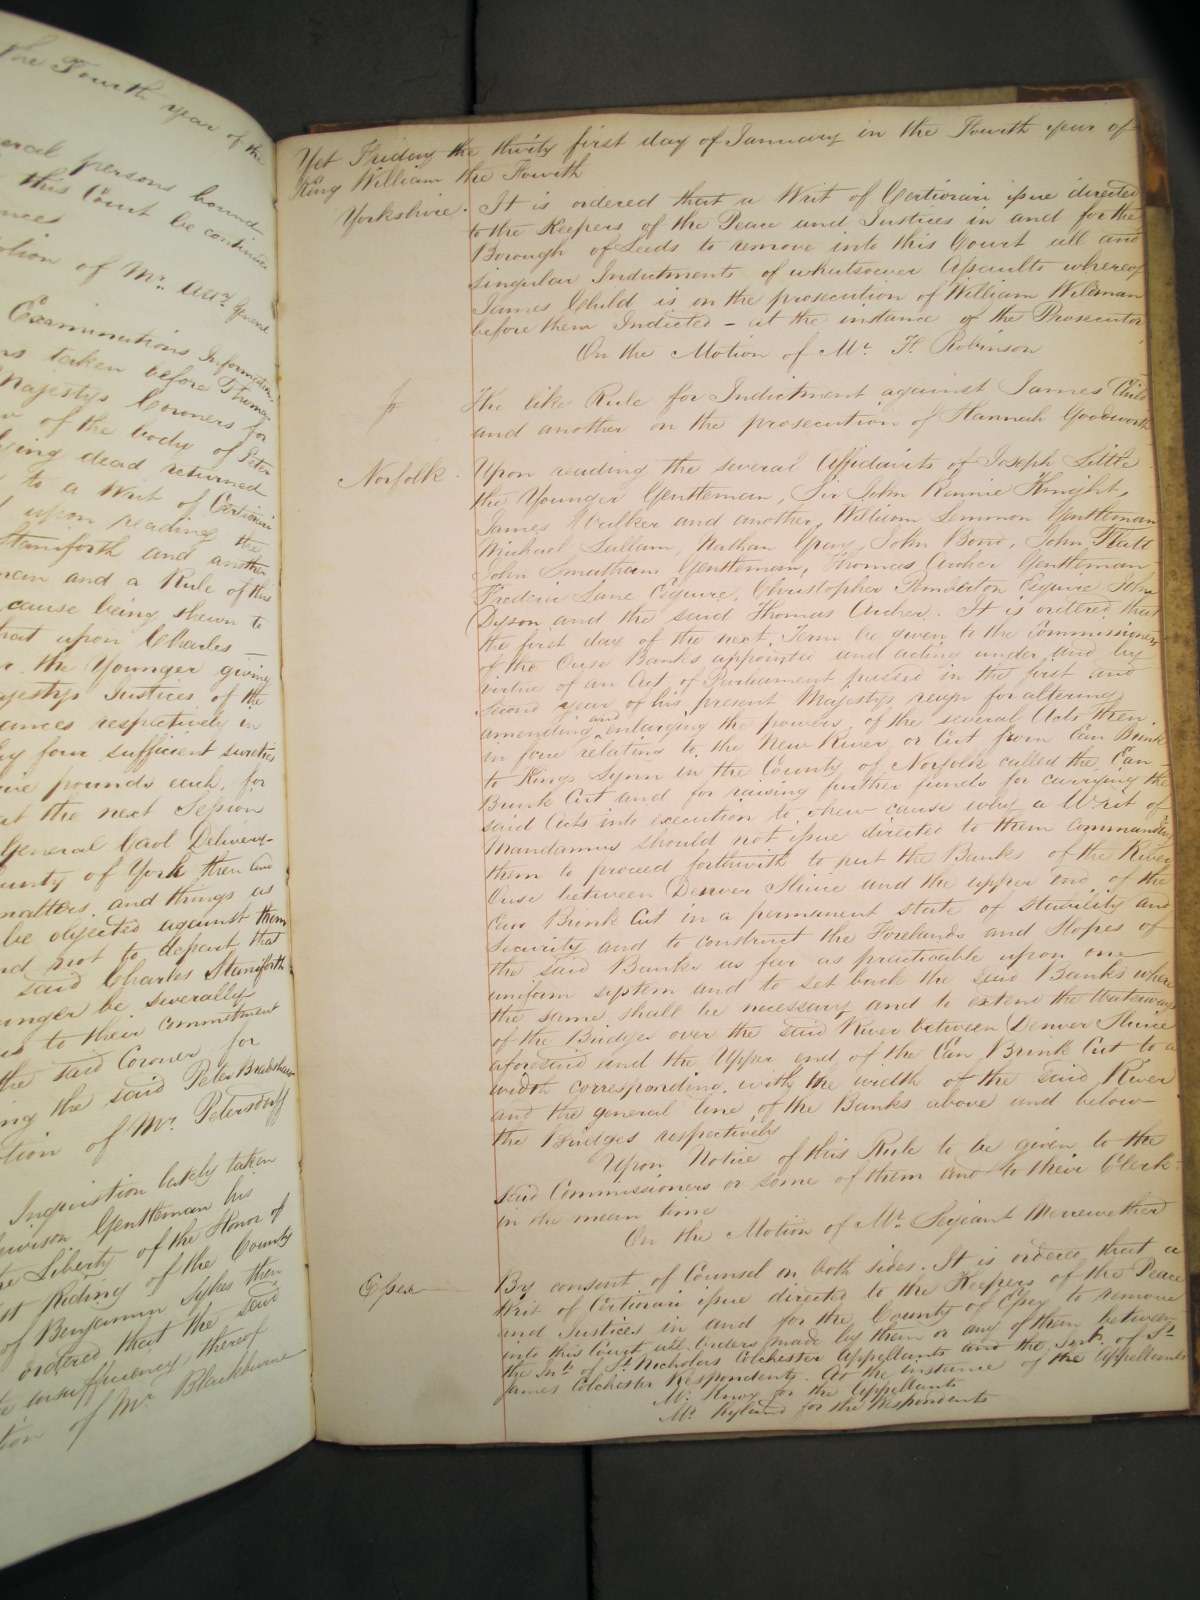 the Fourth year of the
eral persons bound
this Court be continued
nces
otion of Mr. Atty. General
Examinations Informations
ns taken before Thomas
Majestys Coroners for
w of the body of Peter
lying dead returned
to a Writ of Certiorari
upon reading the
Staniforth and another
man and a Rule of this
cause being shewn to
hat upon Charles
r the Younger giving
ajestys Justices of the
ances respectively in
by four sufficient sureties
five pounds each, for
at the next Session
General Gaol Delivery
ounty of York then and
matters and things as
be objected against them
nd not to depart that
said Charles Staniforth
unger be severally
as to their commitment
the said Coroner for
ing the said Peter Bradshaw
otion of Mr. Petersdorff
Inquisition lately taken
Gentleman his
he Liberty of the Honor of
st Riding of the County
of Benjamin Sykes then
ordered that the said
e insufficiency thereof
tion of Mr Blackburne
Yet Friday the thirty first day of January in the Fourth year of
King William the Fourth
Yorkshire. It is ordered that a Writ of Certiorari issue directed
to the Keepers of the Peace and Justices in and for the
Borough of Leeds to remove into this Court all and
singular Indictments of whatsoever Assaults whereof
James Child is on the prosecution of William Wildman
before them Indicted - at the instance of the Prosecutor
On the Motion of Mr. H. Robinson
The like Rule for Indictment against James Child
and another on the prosecution of Hannah Goodworth
Norfolk. Upon reading the several Affidavits of Joseph Little
the Younger Gentleman, Sir John Rennie Knight,
James Walker and another, William Lemmon Gentleman
Michael Sullam, Nathan Gray, John Bond, John Flatt
John Smatham Gentleman, Thomas Archer Gentleman
Frederic Lane Esquire, Christopher Pemberton Esquire John
Dyson and the said Thomas Archer. It is ordered that
the first day of the next Term be given to the Commissioners
of the Ouse Banks appointed and acting under and by
virtue of an Act of Parliament passed in the first and
second year of his present Majestys reign for altering
amending and enlarging the powers of the several Acts then
in force relating to the New River or Cut from Eau Brink
to Kings Lynn in the County of Norfolk called the Eau
Brink Cut and for raising further funds for carrying the
said Acts into execution to shew cause why a Writ of
Mandamus should not issue directed to them commanding
them to proceed forthwith to put the Banks of the River
Ouse between Denver Sluice and the upper end of the
Eau Brink Cut in a permanent state of stability and
security and to construct the Forelands and Slopes of
the said Banks as far as practicable upon one
uniform system and to set back the said Banks where
the same shall be necessary and to extend the Waterways
of the Bridges over the said River between Denver Sluice
aforesaid and the Upper end of the Eau Brink Cut to a
width corresponding with the width of the said River
and the general line of the Banks above and below
the Bridges respectively
Upon Notice of this Rule to be given to the
said Commissioners or some of them and to their Clerk
in the mean time
On the Motion of Mr. Serjeant Merewether
Essex By consent of Counsel on both sides. It is ordered that a
Writ of Certiorari issue directed to the Keepers of the Peace
and Justices in and for the County of Essex to remove
into this Court all Orders made by them or any of them between
the Inhts. of St. Nicholas Colchester Appellants and the Inhts. of St.
James Colchester Respondents. At the instance of the Appellants
Mr. Knox for the Appellants
Mr. Ryland for the Respondents